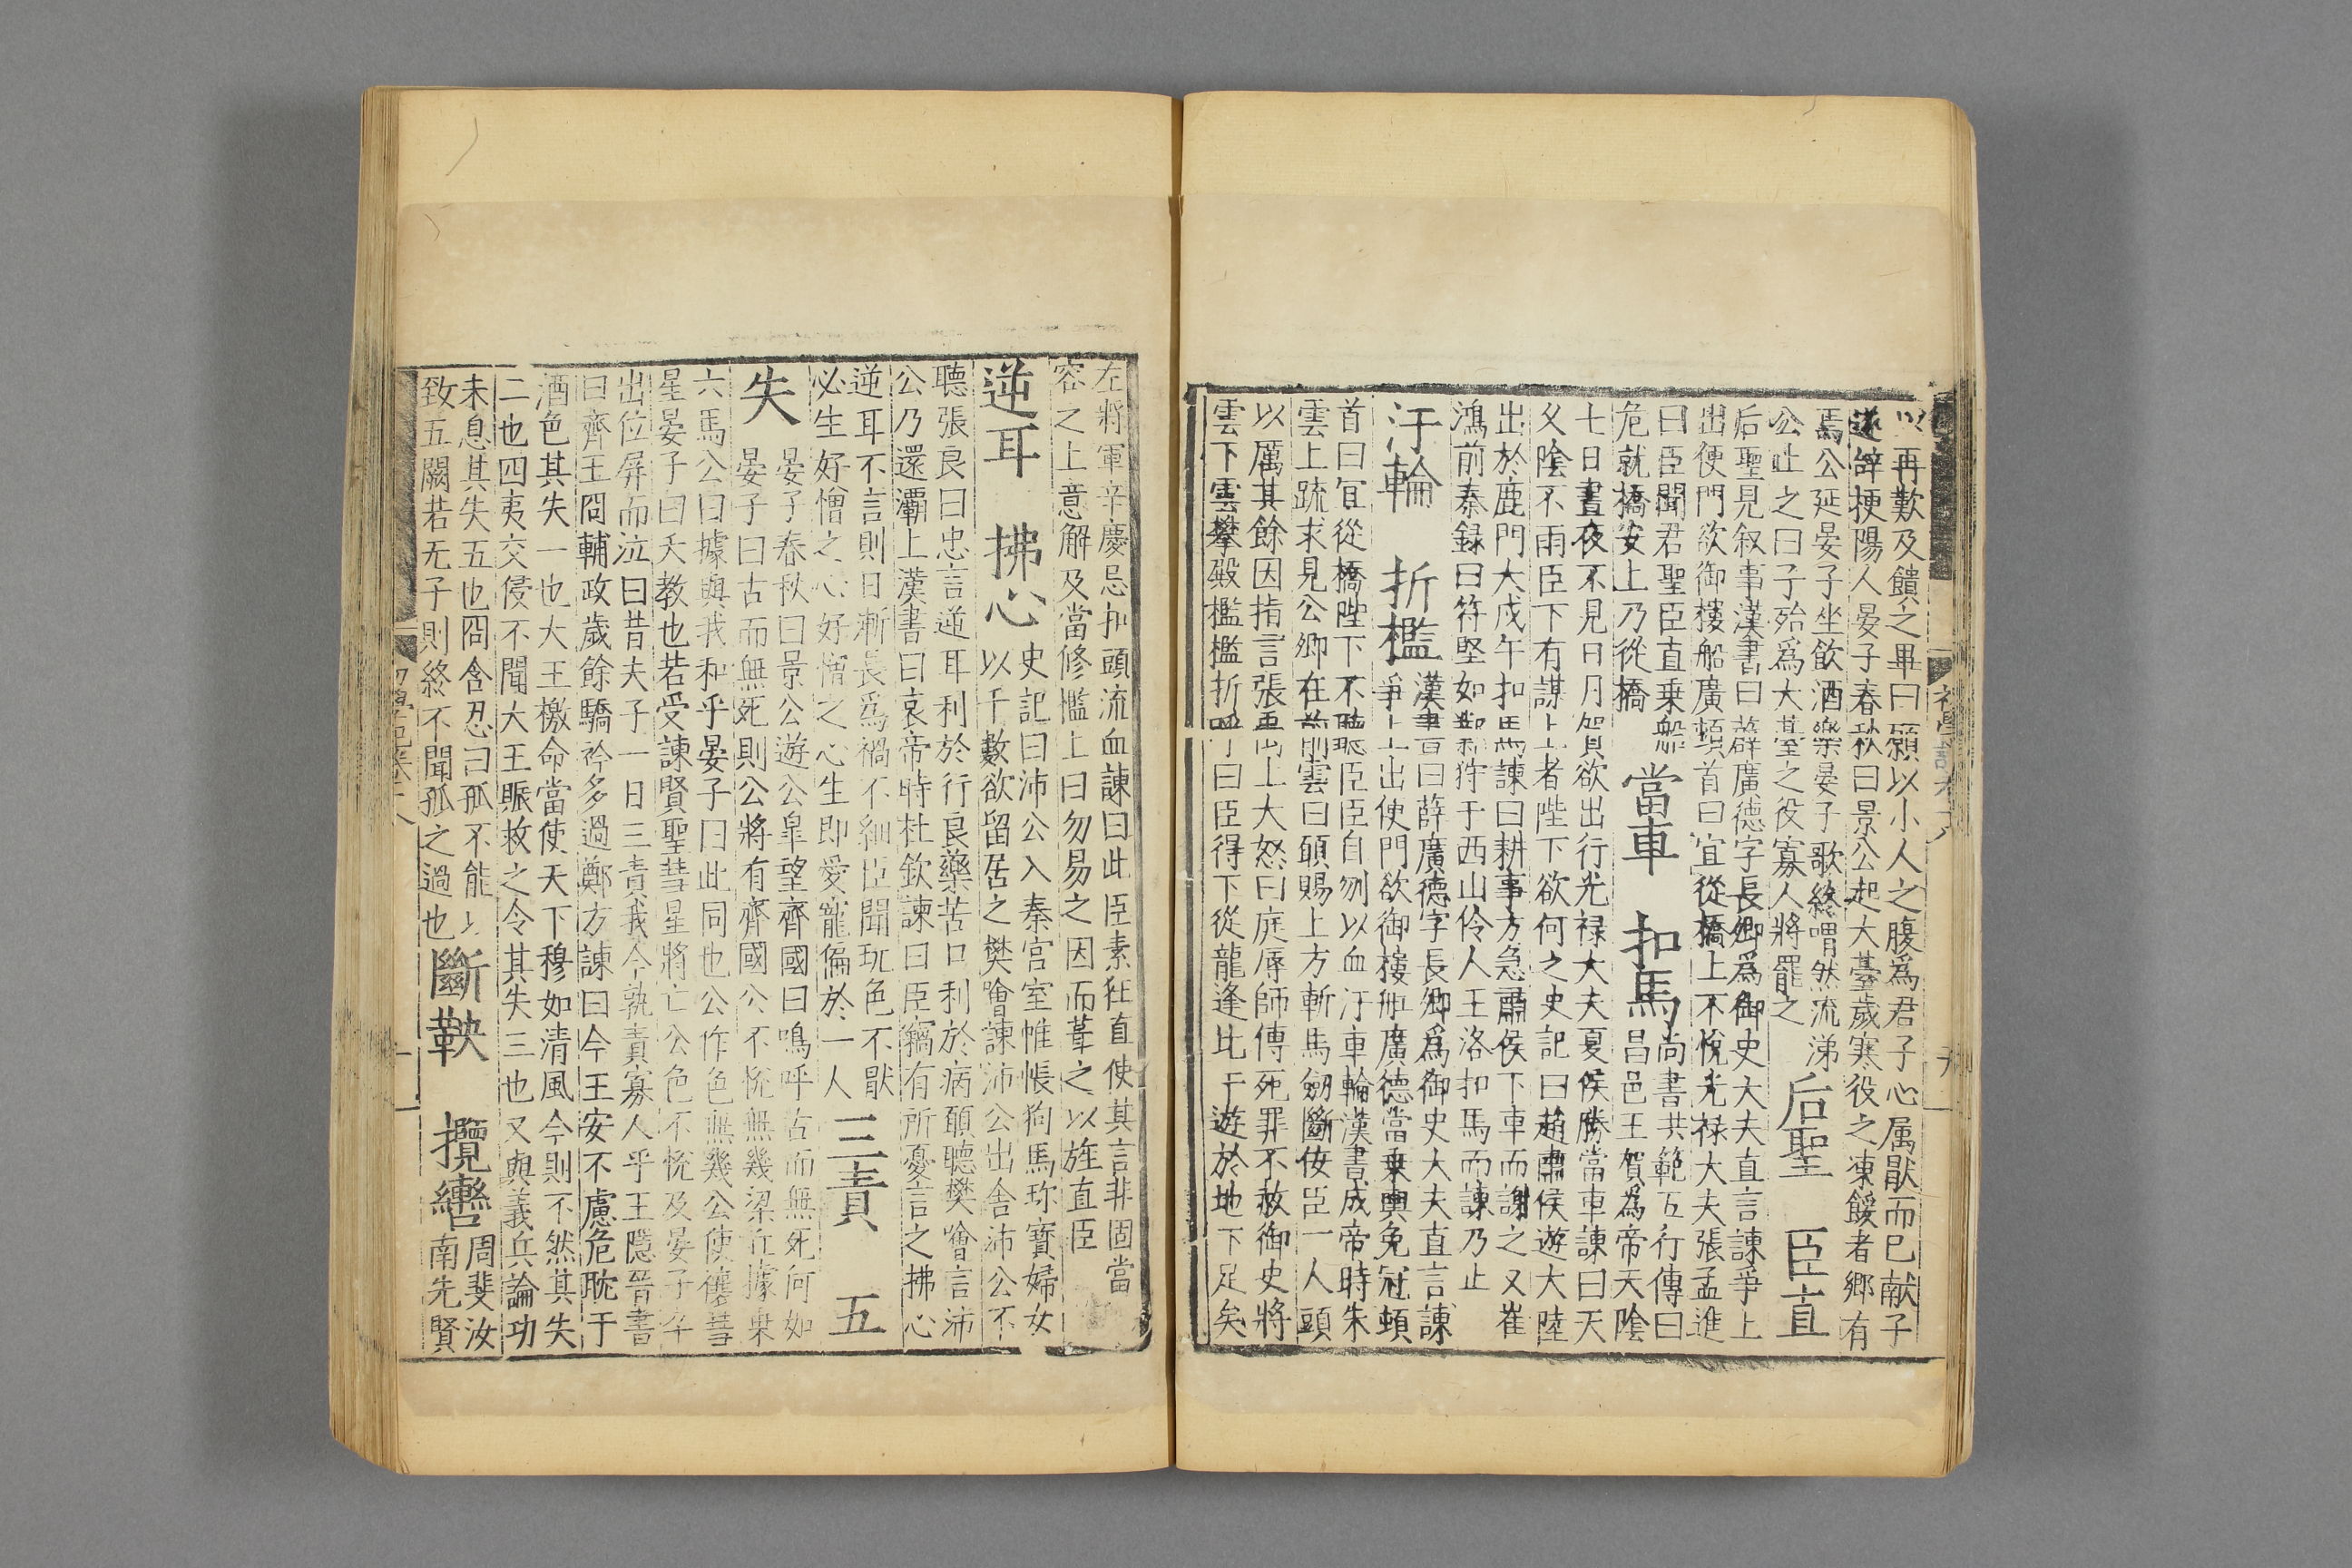 以再歎及饋之畢曰願以小人之腹爲君子心属猒而巳献子
遂辞梗陽人晏子春秋曰景公起大臺歲寒役之凍餒者鄉有
焉公延晏子坐飲酒樂晏子歌終喟然流涕
公止之曰子殆爲大臺之役寡人將罷之
后聖 臣直
后聖見叙事漢書曰薛廣德字長卿爲御史大夫直言諫爭上
出便門欲御樓船廣頓首曰宜從橋上不恱光禄大夫張孟進
曰臣聞君聖臣直乗船
危就橋安上乃從橋
當車 扣馬
尚書共範五行傳曰
昌邑王賀爲帝天陰
七日晝夜不見日月賀欲出行光禄大夫夏侯勝當車諫曰天
夂陰不雨臣下有謀上者陛下欲何之史記曰趙肅侯遊大陸
出於鹿門大戊午扣馬諫曰耕事方急肅侯下車而謝之又崔
鴻前秦録曰符堅如鄴狩于西山伶人王洛扣馬而諫乃止
汙輪 折檻
漢書曰薛廣德字長卿爲御史大夫直言諫
爭上出使門欲御樓舡廣德當乗輿免冠頓
首曰宜從橋陛下不聴臣臣自刎以血汙車輪漢書成帝時朱
雲上疏求見公卿在前雲曰願賜上方斬馬劒斷佞臣一人頭
以厲其餘因指言張禹上大怒曰庭辱師傅死罪不赦御史將
雲下雲攀殿檻檻折呼曰臣得下從龍逢比干遊於地下足矣
左將軍辛慶忌扣頭流血諫曰此臣素狂直使其言非固當
容之上意解及當修檻上曰勿易之因而葺之以旌直臣
逆耳 拂心
史記曰沛公入秦宮室帷帳狗馬珎寶婦女
以千數欲留居之樊噲諫沛公出舍沛公不
聴張良曰忠言逆耳利於行良藥苦口利於病願聴樊噲言沛
公乃還灞上漢書曰哀帝時杜欽諫曰臣竊有所憂言之拂心
逆耳不言則日漸長爲禍不細臣聞玩色不猒
必生好憎之心好憎之心生即愛寵偏於一人
三責 五
失
晏子春秋曰景公遊公阜望齊國曰嗚呼古而無死何如
晏子曰古而無死則公將有齊國公不恱無幾梁丘據乗
六馬公曰據與我和乎晏子曰此同也公作色無幾公使禳彗
星晏子曰天教也若受諫賢聖彗星將亡公色不恱及晏子卒
出位屏而泣曰昔夫子一日三責我今孰責寡人乎王隱晉書
曰齊王冏輔政歲餘驕衿多過鄭方諫曰今王安不慮危耽于
酒色其失一也大王檄命當使天下穆如清風今則不然其失
二也四夷交侵不聞大王賑救之令其失三也又與義兵論功
未息其失五也冏含忍曰孤不能以
致五闕若无子則終不聞孤之過也
斷鞅 攬轡
周斐汝
南先賢